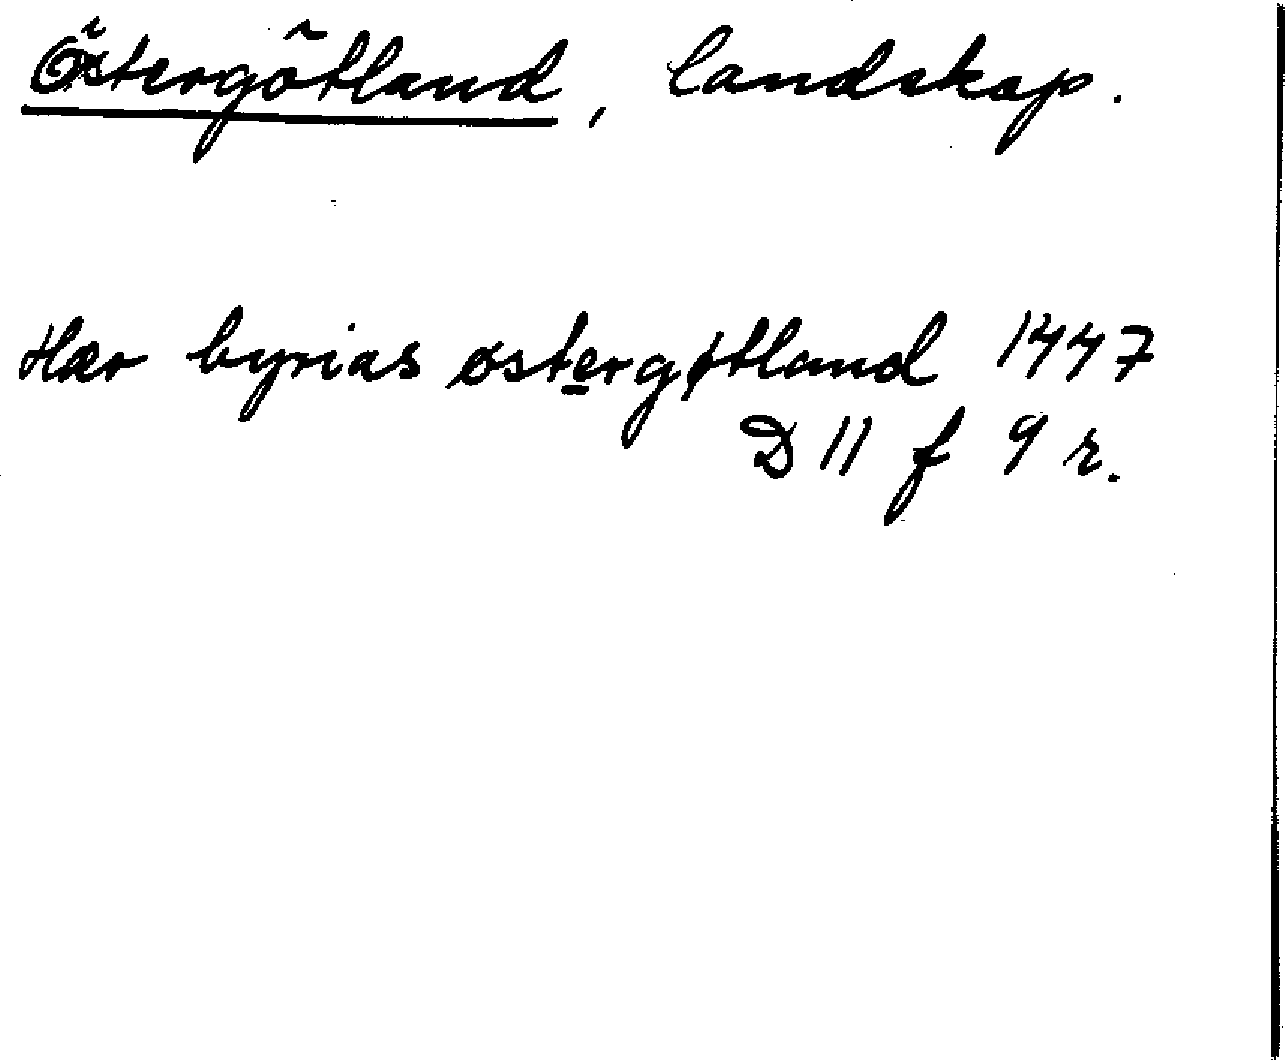 Östergötland, landskap.
Hær byrias østergøtland 1447
D 11 f 9 r.